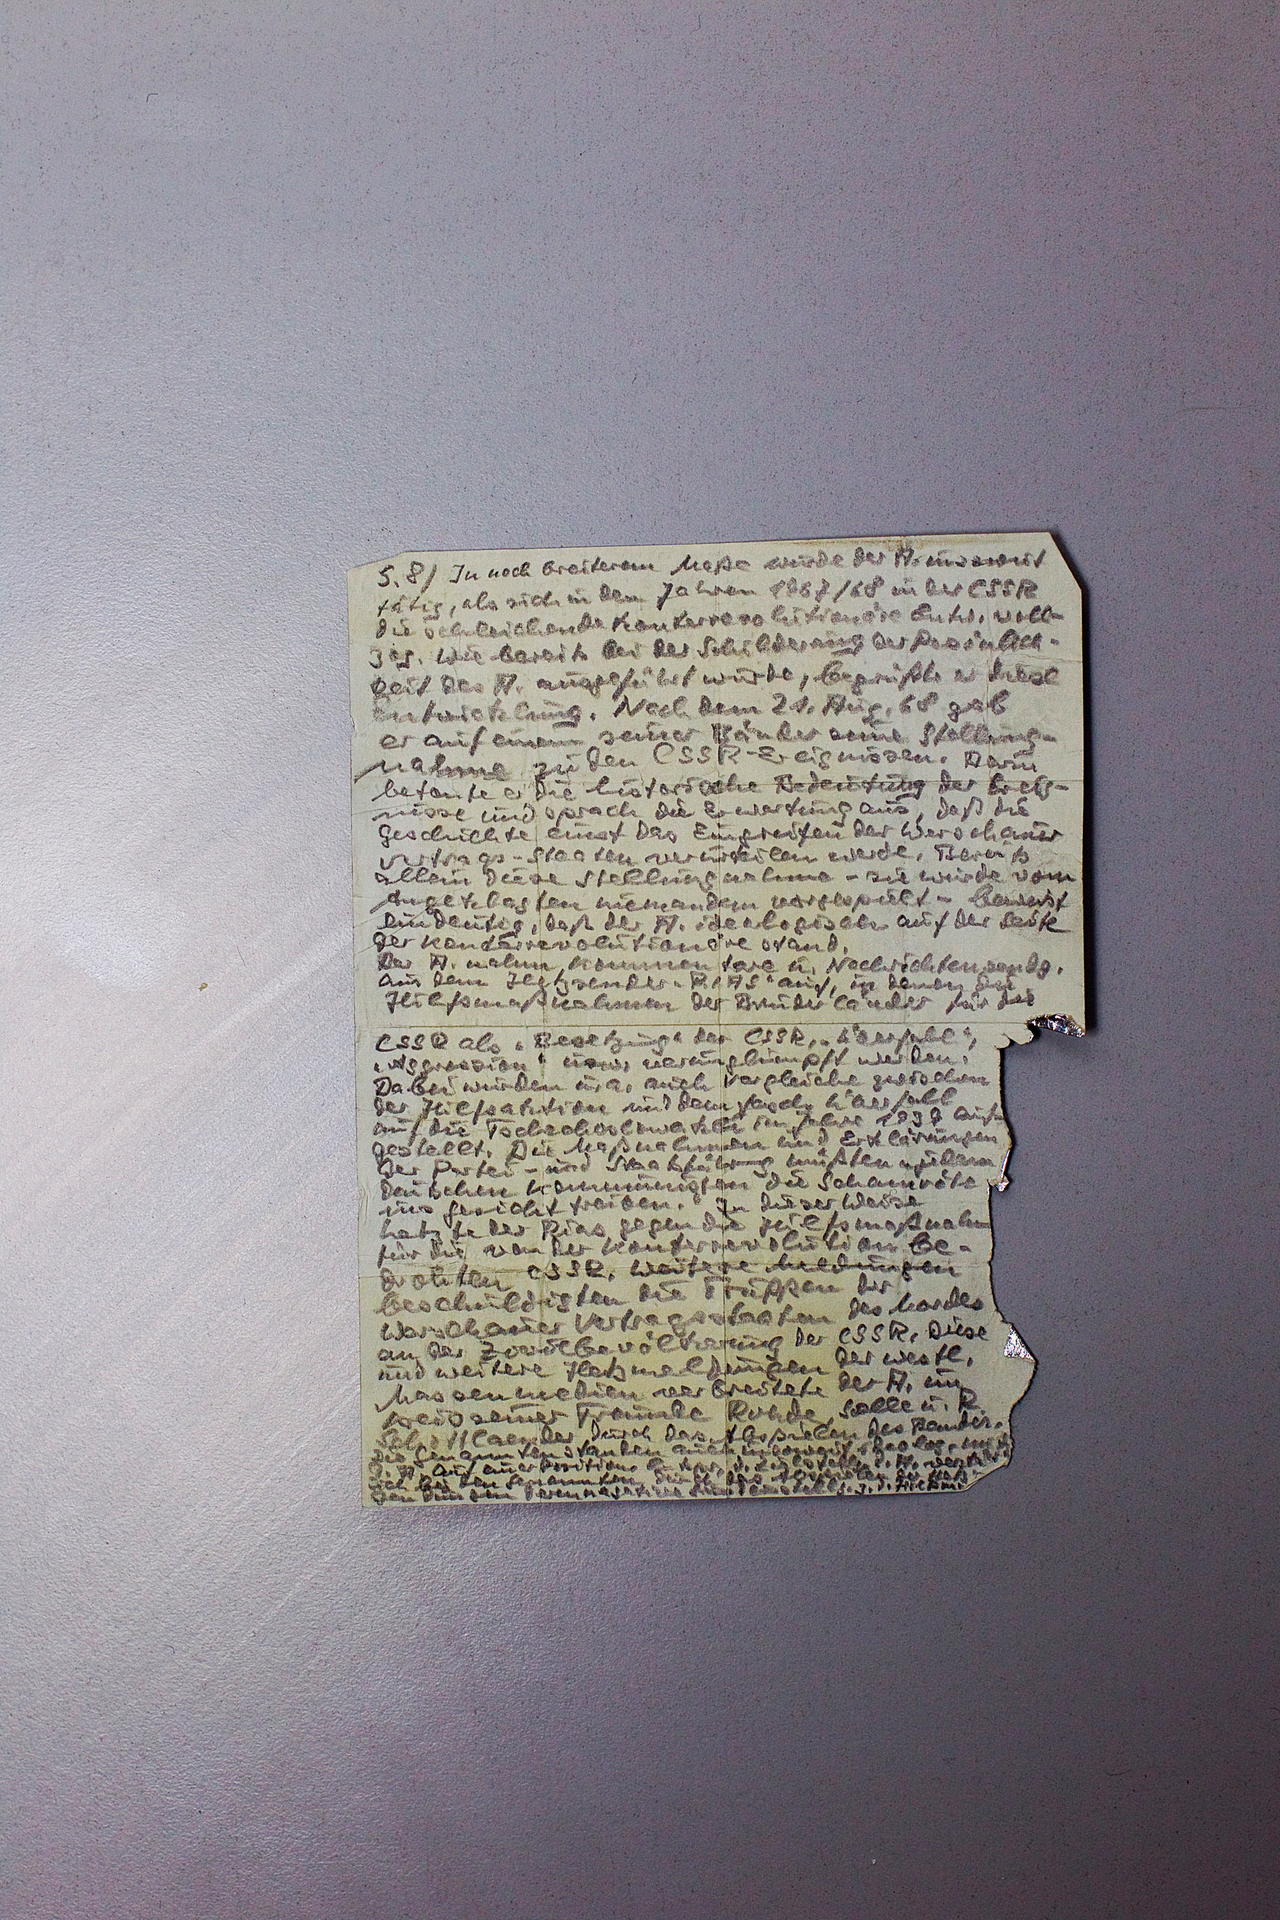 S. 8/ In noch breiterem Maße wurde der A. insoweit
tätig, als sich in den Jahren 1967/68 in der CSSR
die schleichende konterrevolutionäre Entw. voll-
zog. Wie bereits bei der Schilderung der Persönlich-
keit des A. ausgeführt wurde, begrüßte er diese
Entwickelung. Nach dem 21. Aug. 68 gab
er auf einem seiner Bänder seine Stellung-
nahme zu den CSSR-Ereignissen. Darin
betonte er die historische Bedeutung der Ereig-
nisse und sprach die Erwartung aus, daß die
Geschichte einst das Eingreifen der Warschauer
Vertrags-Staaten verurteilen werde. Bereits
allein diese Stellungnahme - sie wurde vom
Angeklagten niemandem vorgespielt - beweist
eindeutig, daß der A. ideologisch auf der Seite
der Konterrevolutionäre stand.
Der A. nahm Kommentare u. Nachrichtensendg.
aus dem Hetzsender "RIAS" auf, in denen die
Hilfsmaßnahmen der Bruderländer für die
CSSR als "Besetzung" der CSSR, "Überfall",
"Aggression" usw. verunglimpft werden.
Dabei wurden u.a. auch Vergleiche zwischen
der Hilfsaktion und dem fasch. Überfall
auf die Tschechoslowakei im Jahre 1939 auf-
gestellt. Die Maßnahmen und Erklärungen
der Partei- und Staatsführung müßten "jedem
deutschen Kommunisten die Schamröte
ins Gesicht treiben." In dieser Weise
hetzte der Rias gegen die Hilfsmaßnahm
für die von der Konterrevolution be-
drohten CSSR. Weitere Meldungen
beschuldigten die Truppen der
Warschauer Vertragsstaaten des Mordes
an der Zivilbevölkerung der CSSR. Diese
und weitere Hetzmeldungen der westl.
Massenmedien verbreitete der A. im
Kreis seiner Freunde Rohde, Salle u. R.
Schottlaender durch das Abspielen des Bandes.
Die Genannten standen auch insoweit ideolog. mit
d. A. auf einer Position
sich bei den Genannten durch das Abspielen der Hetz-